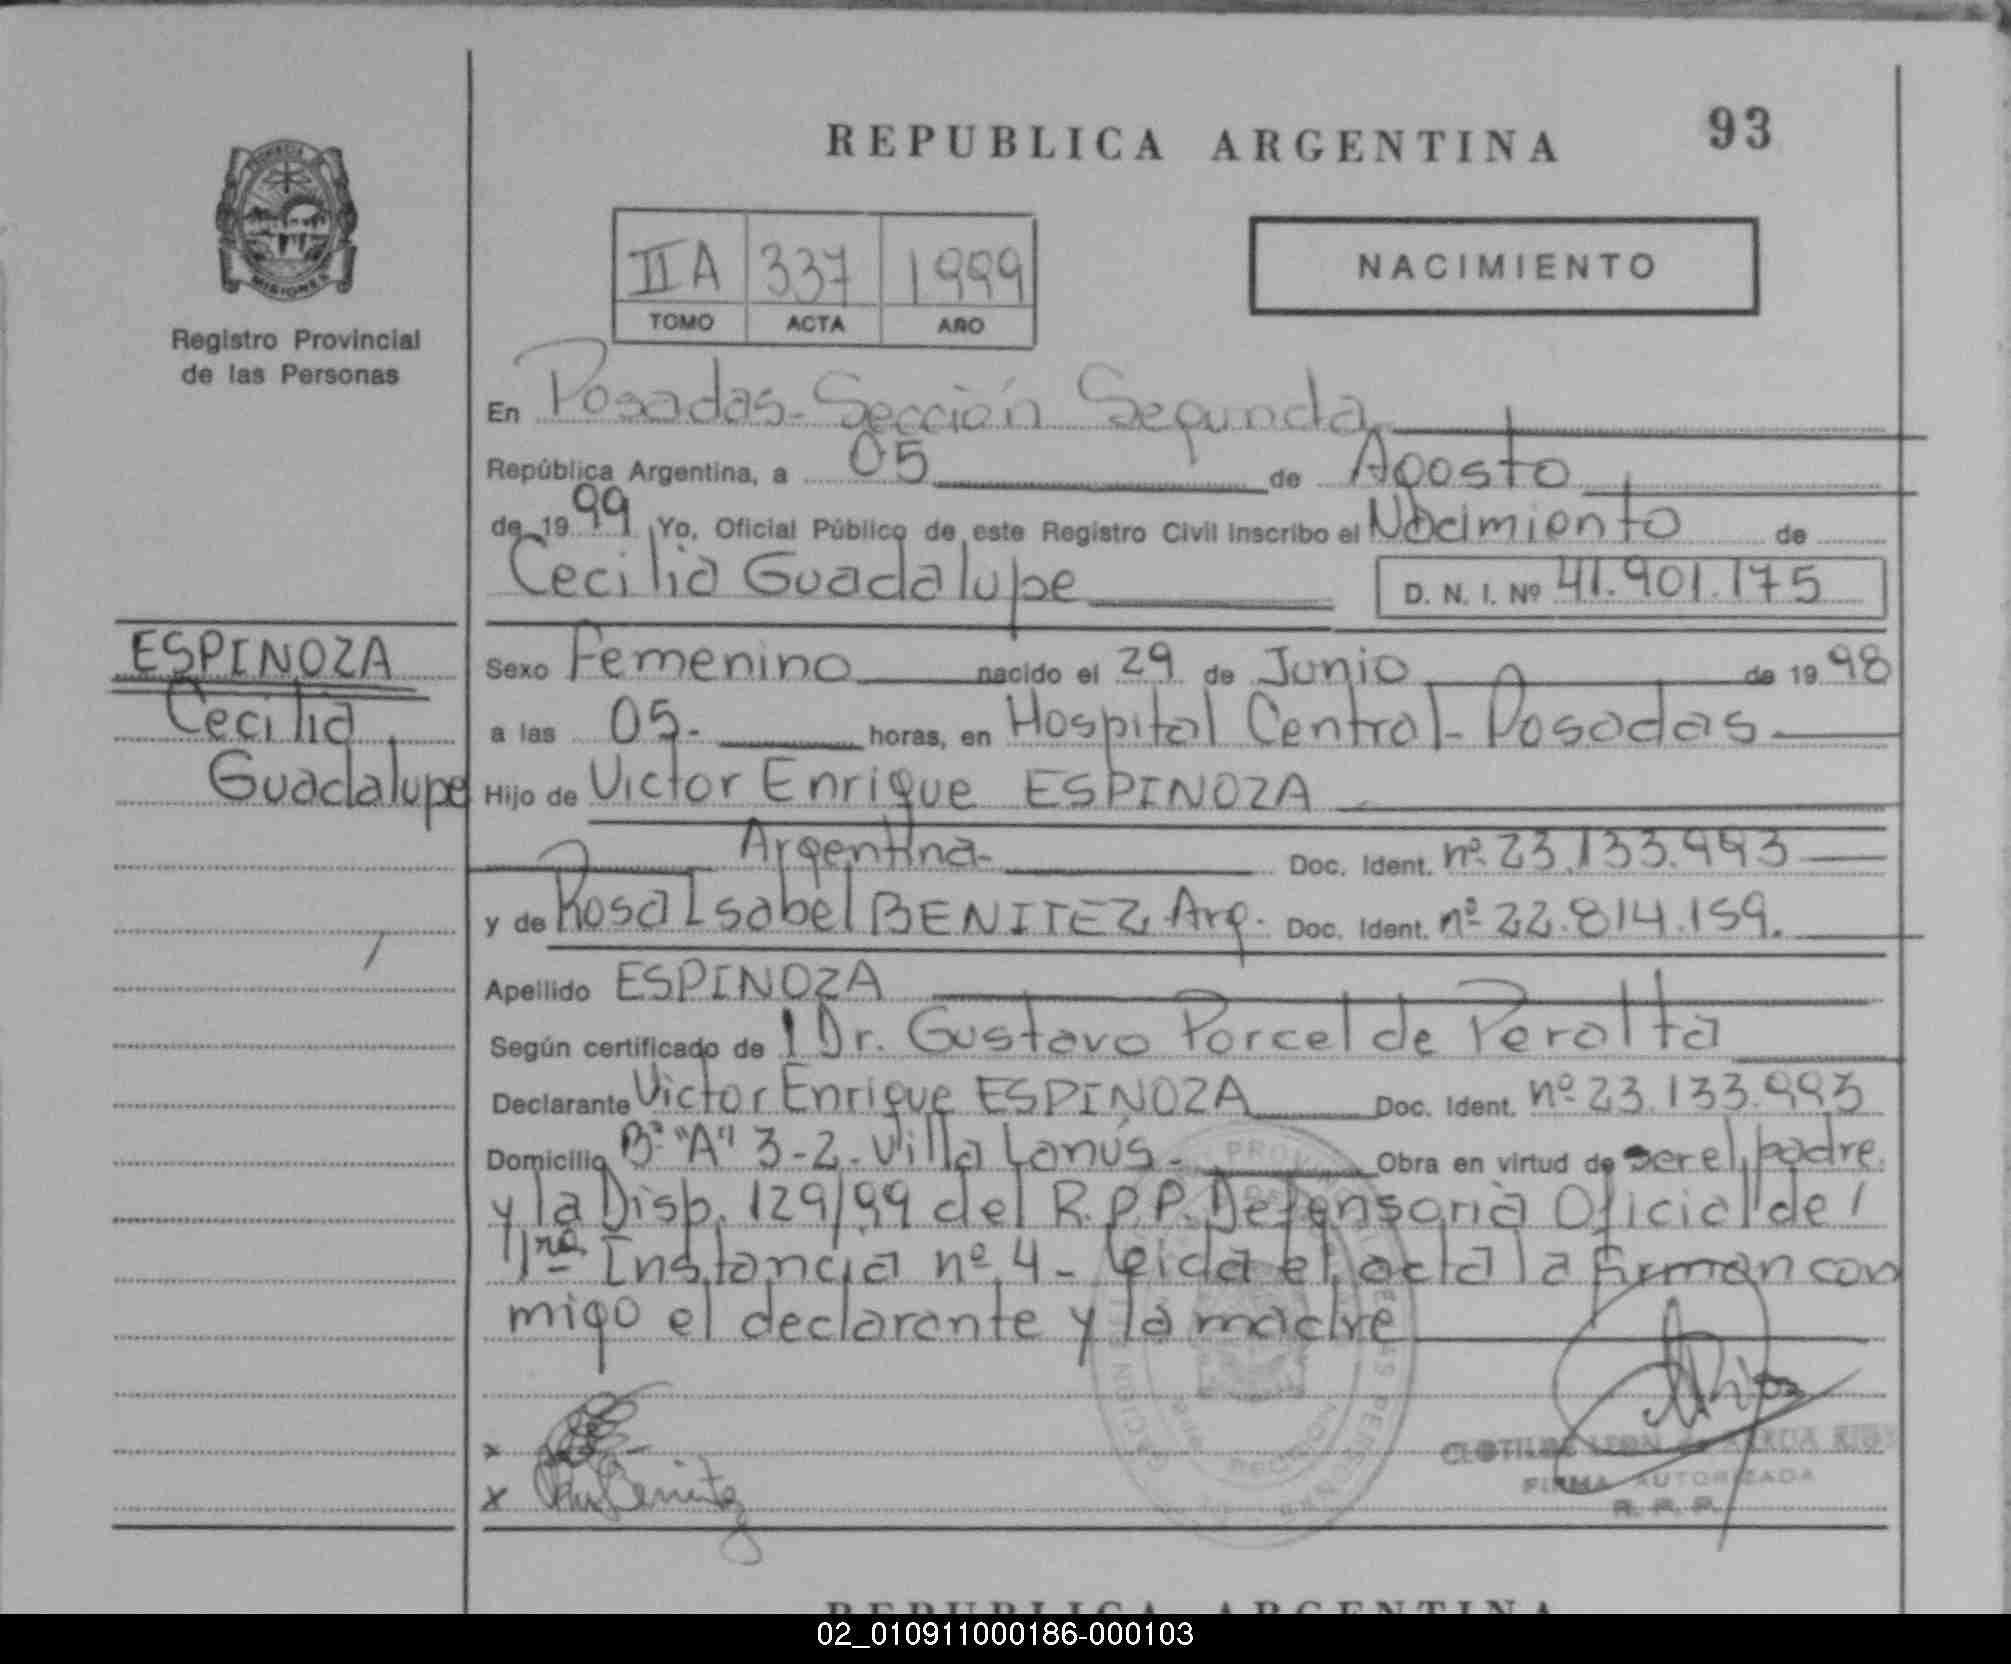 REPUBLICA ARGENTINA
93
PROVINCIA
MISIONES
Registro Provincial
de las Personas
II A 337 1999
TOMO ACTA AÑO
NACIMIENTO
En Posadas - Sección Segunda
República Argentina, a 05 de Agosto
de 1999 Yo, Oficial Público de este Registro Civil inscribo el Nacimiento de
Cecilia Guadalupe D. N. I. Nº 41.901.175
ESPINOZA
Cecilia
Guadalupe
Sexo Femenino nacido el 29 de Junio de 1998
a las 05.- horas, en Hospital Central - Posadas
Hijo de Victor Enrique ESPINOZA
Argentina - Doc. Ident. nº 23.133.993
y de Rosa Isabel BENITEZ, Arg. Doc. Ident. nº 22.814.159.
Apellido ESPINOZA
Según certificado de l Dr. Gustavo Porcel de Peralta
Declarante Victor Enrique ESPINOZA Doc. Ident. nº 23.133.993
Domicilio Bº "A" 3-2- Villa Lanús - Obra en virtud de ser el padre
y la Disp. 129/99 del R.P.P. Defensoria Oficial de
1ra Instancia nº 4 - leida el acta la firman con
migo el declarante y la madre
x
x Benitez
CLOTILDE LEON
FIRMA AUTORIZADA
R. P. P.
REPUBLICA ARGENTINA
02_010911000186-000103